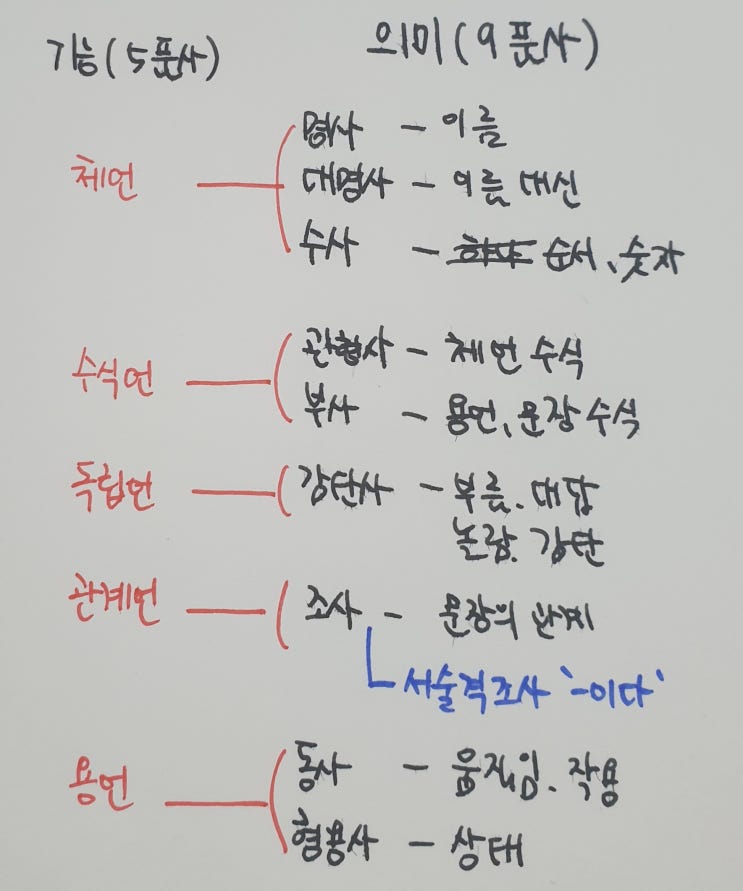 기능(5품사) 의미(9품사)
체언 명사 - 이름
대명사 - 이름 대신
수사 - 순서、숫자
수식언 관형사 - 체언 수식
부사 - 용언、문장 수식
독립언 감탄사 - 부름. 대답
놀람. 감탄
관계언 조사 - 문장의 관계
서술격조사 '-이다'
용언 동사 - 움직임. 작용
형용사 - 상태